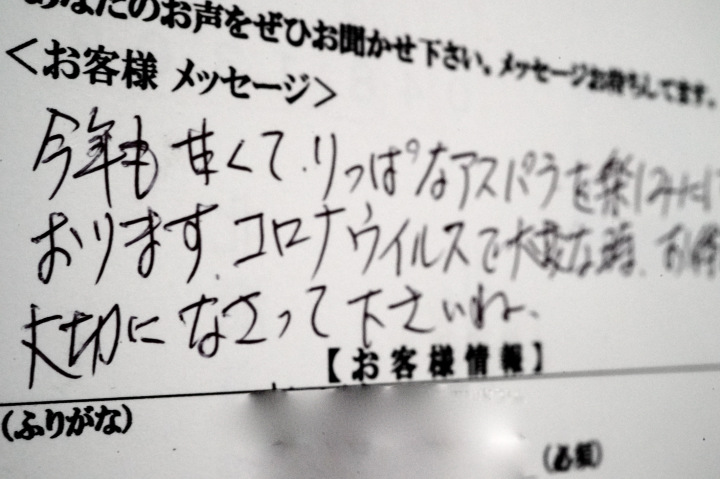 あなたのお声をぜひお聞かせ下さい。メッセージお待ちしてます。
＜お客様 メッセージ＞
今年も甘くて、りっぱなアスパラを楽しみに
おります。コロナウイルスで大変な時、お体
大切になさって下さいね。
【お客様情報】
(ふりがな)
(必須)